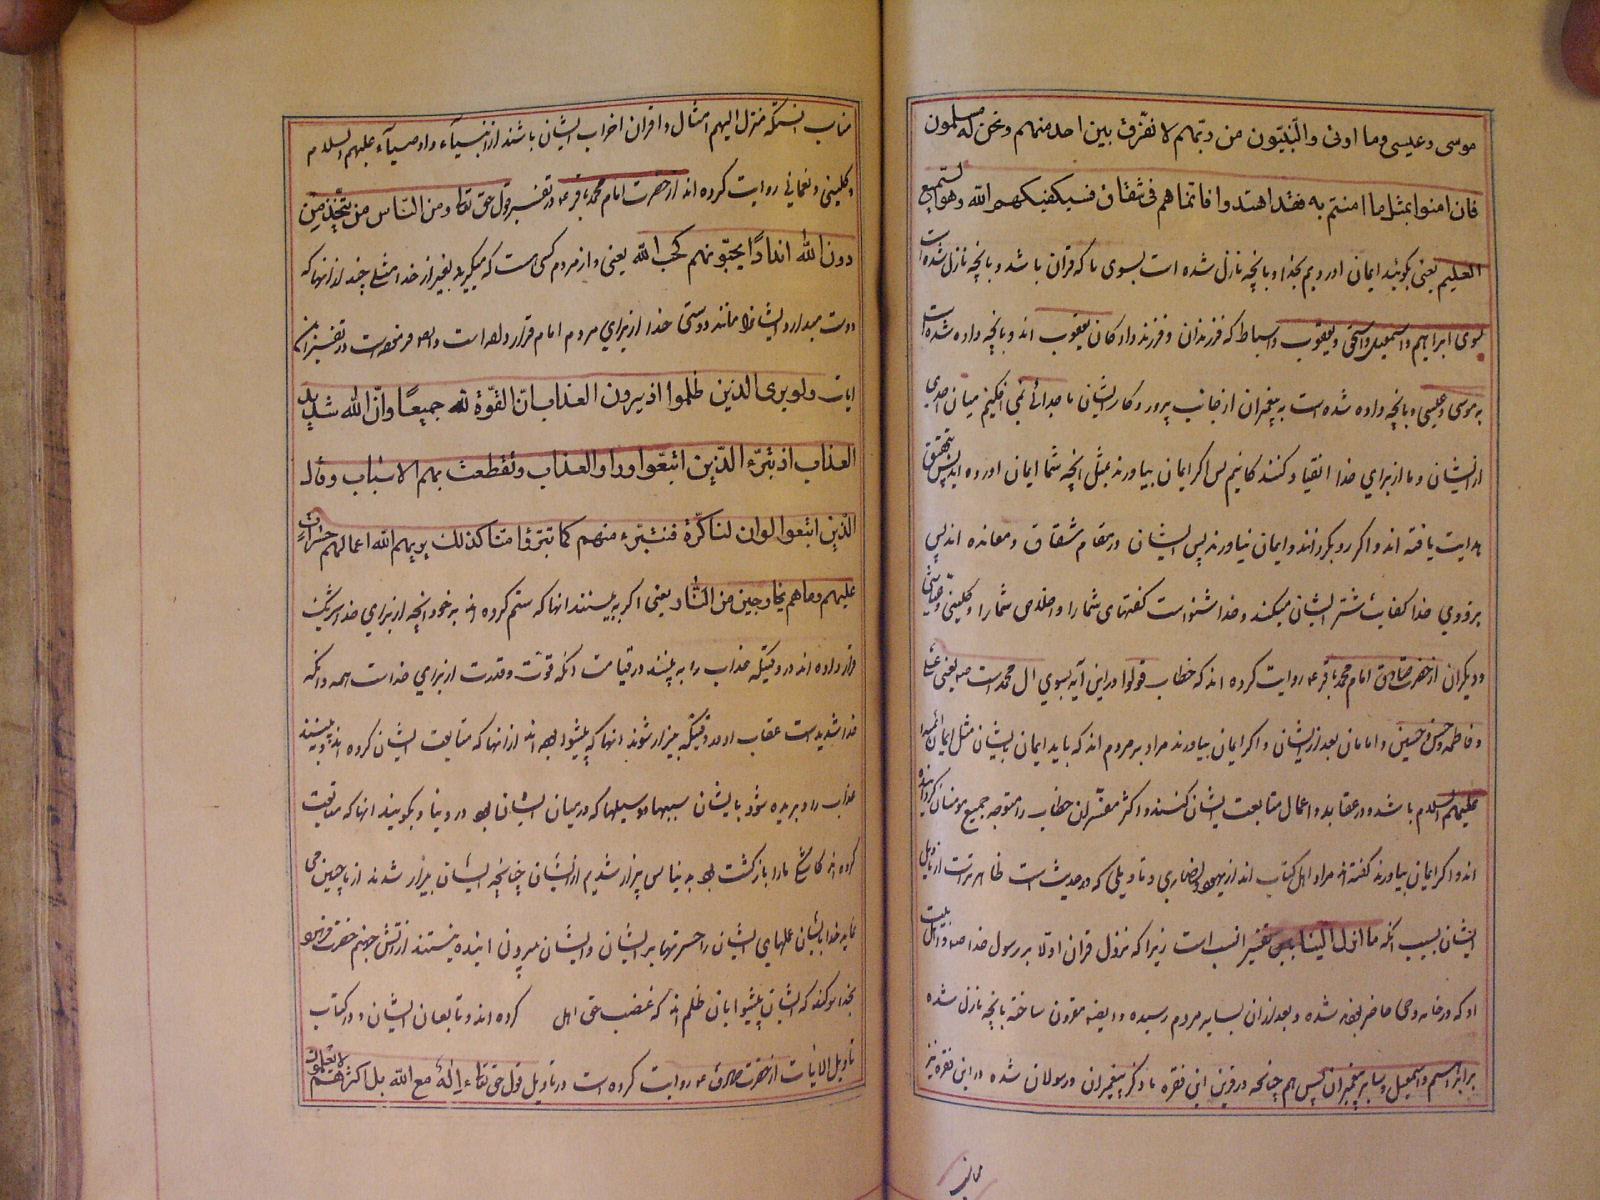 موسی و عیسی وما اوتی والنّبیّون من ربّهم لا نفرّق بین احد منهم ونحن له مسلمون
فان امنوا بمثل ما امنتم به فقد اهتدوا فانّما هم فی شقاق فسیکفیکهم الله وهو السّمیع
العلیم یعنی بکوئید ایمان اوردیم بخدا و بانچه نازل شده است بسوی ما که قران باشد و بانچه نازل شده است
بسوی ابراهیم و اسمعیل و اسحق و یعقوب و اسباط که فرزندان و فرزند زادکان یعقوب اند و بانچه داده شده است
به موسی و عیسی و بانچه داده شده است به پیغمبران از جانب پرورد کار ایشان ما جدائی نمی افکنیم میان احدی
از ایشان و ما از برای خدا انقیاد کنند کانیم پس اکر ایمان بیاورند بمثل انچه شما ایمان اورده اید پس بتحقیق
هدایت یافته اند و اکر رو بکردانند و ایمان نیاورند پس ایشان در مقام شقاق و معانده اند پس
بزودی خدا کفایت شر ایشان میکند و خدا شنواست کفتهای شما را و کلینی و عیاشی
و دیکران از حضرت امام محمد باقر ع روایت کرده اند که خطاب قولوا در این آیه بسوی ال محمد است ص یعنی علی
و فاطمه و حسن و حسین و امامان بعد از ایشان و اکر ایمان بیاورند مراد بر مردم اند که باید ایمان ایشان مثل ایمان ائمه
علیهم السلام باشد و در عقاید و اعمال متابعت ایشان کنند و اکثر مفسران خطاب را متوجه جمیع مومنان کردانیده
اند و اکر ایمان بیاورند کفته اند مراد اهل کتاب اند از یهود و نصاری و تاویلی که در حدیث است ظاهر تر است از تاویل
ایشان بسبب انکه ما انزل الینا باین تفسیر انسب است زیرا که نزول قران اولا بر رسول خدا ص و اهل بیت
او که در خانه وحی حاضر بوده شده و بعد از ان بسایر مردم رسیده و ایضا مقرون ساخته بانچه نازل شده
بر ابراهیم و اسمعیل و سایر پیغمبران پس هم چنانچه در قرین این فقره ما ذکر پیغمبران و رسولان شده در این فقره نیز
مناسب انستکه منزل الیهم امثال و اقران احزاب ایشان باشند از انبیاء و اوصیاء علیهم السلام
و کلینی و نعمانی روایت کرده اند از حضرت امام محمد باقر ع در تفسیر قول حق تعالی ومن النّاس من یتّخذ من
دون الله اندادًا یحبّونهم کحب الله یعنی و از مردم کسی است که میکیرند بغیر از خدا مثلی چند از انها که
دوست میدارد ایشانرا مانند دوستی خدا از برای مردم امام قرار داده است در تفسیر ان
ایات ولو یری الذین ظلموا اذ یرون العذاب انّ القوّة لله جمیعًا وانّ الله شدید
العذاب اذ تبرّء الذّین اتبعوا وراوا العذاب وتقطعت بهم الاسباب وقال
الذّین اتبعوا لو ان لنا کرّة فنتبرّء منهم کما تبرّؤا منّا کذلک یریهم الله اعمالهم حسرات
علیهم وما هم بخارجین من النّار یعنی اکر به بینند انها که ستم کرده اند به خود انچه از برای خدا شریک
قرار داده اند در وقتیکه عذاب را به بینند در قیامت انکه قوّت و قدرت از برای خداست همه و انکه
خدا شدیدست عقاب او در وقتیکه بیزار شوند انها که پیشوا بوده اند از انها که متابعت ایشان کرده اند و ببینند
عذاب را و بریده شود بایشان سببها و وسیلها که در میان ایشان بود در دنیا و بکویند انها که متابعت
کرده اند کاش ما را باز کشت بود به دنیا پس بیزار شدیم از ایشان چنانچه ایشان بیزار شدند از ما چنین می
نماید خدا بایشان عملهای ایشان را حسرتها بر ایشان و ایشان بیرون اینده نیستند از اتش جهنم حضرت فرمود
بخدا سوکند که ایشان پیشوایان ظلم اند که غصب حق اهل کرده اند و تابعان ایشان و در کتاب
تاویل الایات از حضرت صادق ع روایت کرده است در تاویل قول حق تعالی ءاله مع الله بل اکثرهم لا یعلمون
مناسب